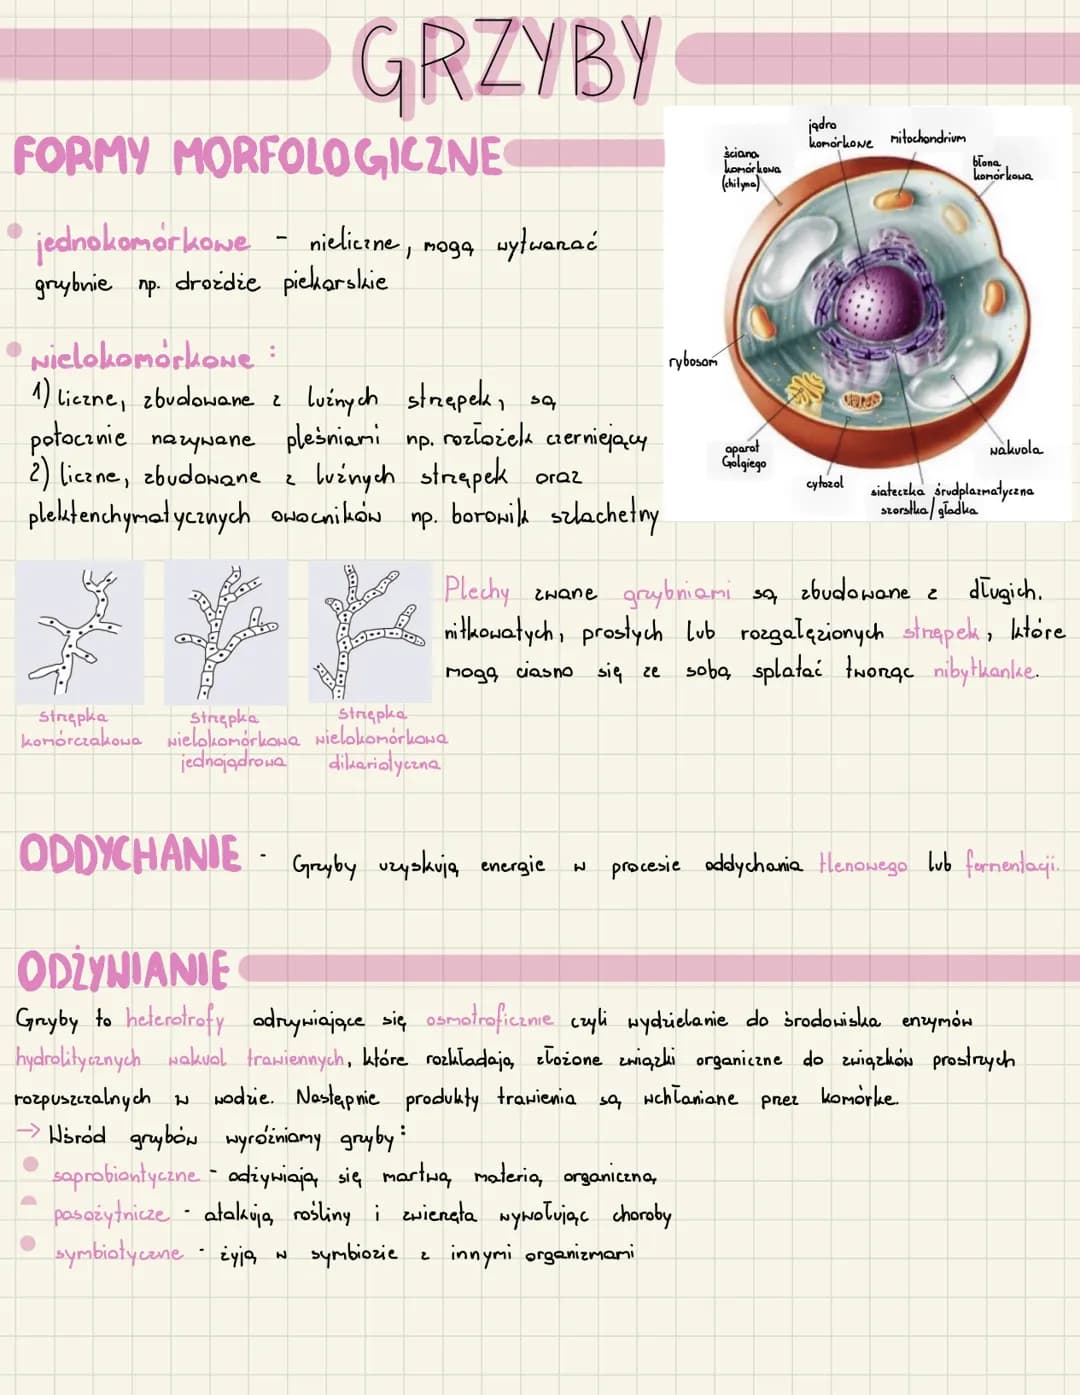 GRZYBY
FORMY MORFOLOGICZNE
jądro
komórkowe
mitochondrium
ściana
komórkowa
(chityna)
błona
komórkowa
rybosom
aparat
Golgiego
cytozol
siateczka śrudplazmatyczna
szorstka/gładka
wakuola
jednokomórkowe - nieliczne, mogą wytwarzać
grzybnie np. drożdże piekarskie
wielokomórkowe :
1) liczne, zbudowane z luźnych strzępek, są
potocznie nazywane pleśniami np. rozłożek czerniejący
2) liczne, zbudowane z luźnych strzępek oraz
plektenchymatycznych owocników np. borowik szlachetny
strzępka
komórczakowa
strzępka
wielokomórkowa
jednojądrowa
strzępka
wielokomórkowa
dikariotyczna
Plechy zwane grzybniami są zbudowane z długich.
nitkowatych, prostych lub rozgałęzionych strzępek, które
mogą ciasno się ze sobą splatać tworząc nibytkanke.
ODDYCHANIE - Grzyby uzyskują energie w procesie oddychania tlenowego lub fermentacji.
ODŻYWIANIE
Grzyby to heterotrofy odrzywiające się osmotroficznie czyli wydzielanie do środowiska enzymów
hydrolitycznych wakuol trawiennych, które rozkładają złożone związki organiczne do związków prostrzych
rozpuszczalnych w wodzie. Następnie produkty trawienia są wchłaniane przez komórke.
→ Wśród grzybów wyróżniamy grzyby:
saprobiontyczne - odżywiają się martwą materią organiczną,
pasożytnicze - atakują rośliny i zwierzęta wywołując choroby
symbiotyczne - żyją w symbiozie z innymi organizmami